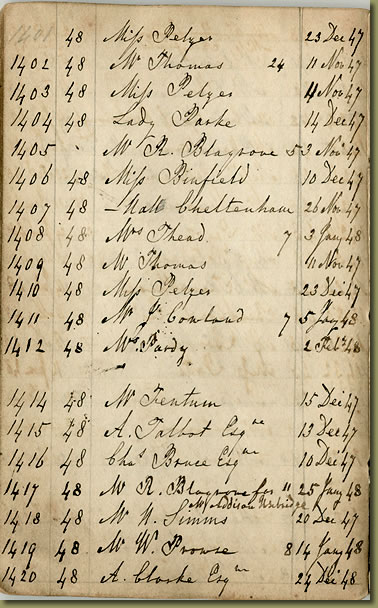 1401 48 Miss Pelzer 23 Dec 47
1402 48 Mr Thomas 24 11 Nov 47
1403 48 Miss Pelzer 4 Nov 47
1404 48 Lady Parke 14 Dec 47
1405 Mr R. Blagrove 53 Nov 47
1406 48 Miss Binfield 10 Dec 47
1407 48 Hall Cheltenham 26 Nov 47
1408 48 Mrs Thead 7 3 Jany 48
1409 48 Mr Thomas 11 Nov 47
1410 48 Miss Pelzer 23 Dec 47
1411 48 Mr Js Cowland 7 5 Jany 48
1412 48 Mrs Pardy 2 Feby 48
1414 48 Mr Fentum 15 Dec 47
1415 48 A. Talbot Esqre 13 Dec 47
1416 48 Chas Bruce Esqre 10 Dec 47
1417 48 Mr R. Blagrove 11 25 Jany 48
Mr Addison Uxbridge
1418 48 Mr N. Simms 20 Dec 47
1419 48 Mr W. Prowse 8 14 Jany 48
1420 48 A. Clarke Esqre 24 Dec 48